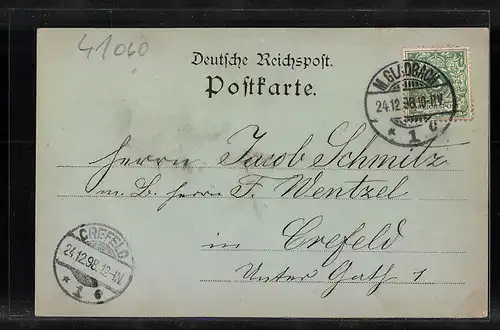 41060
Deutsche Reichspost.
Postkarte.
M. GLADBACH
24.12.98.10-11V.
* 1 c
Herrn Jacob Schmitz
m. B. Herrn F. Wentzel
in Crefeld
Unter Gath 1
CREFELD
24.12.98.12-1N.
* 1 c